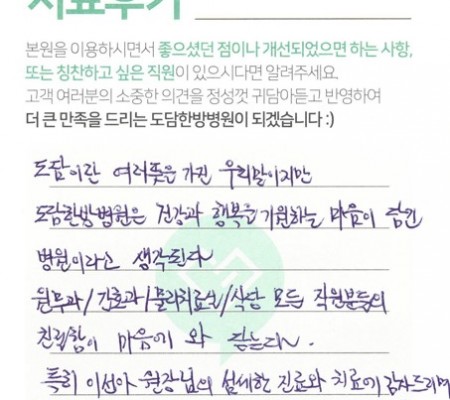 치료후기
본원을 이용하시면서 좋으셨던 점이나 개선되었으면 하는 사항,
또는 칭찬하고 싶은 직원이 있으시다면 알려주세요.
고객 여러분의 소중한 의견을 정성껏 귀담아듣고 반영하여
더 큰 만족을 드리는 도담한방병원이 되겠습니다 :)
도담이란 여러뜻을 가진 우리말이지만
도담한방병원은 건강과 행복을 기원하는 마음이 담긴
병원이라고 생각된다
원무과/간호과/물리치료실/식당 모든 직원분들의
친절함이 마음에 와 닿는다.
특히 이선아 원장님의 섬세한 진료와 치료에 감사드리며